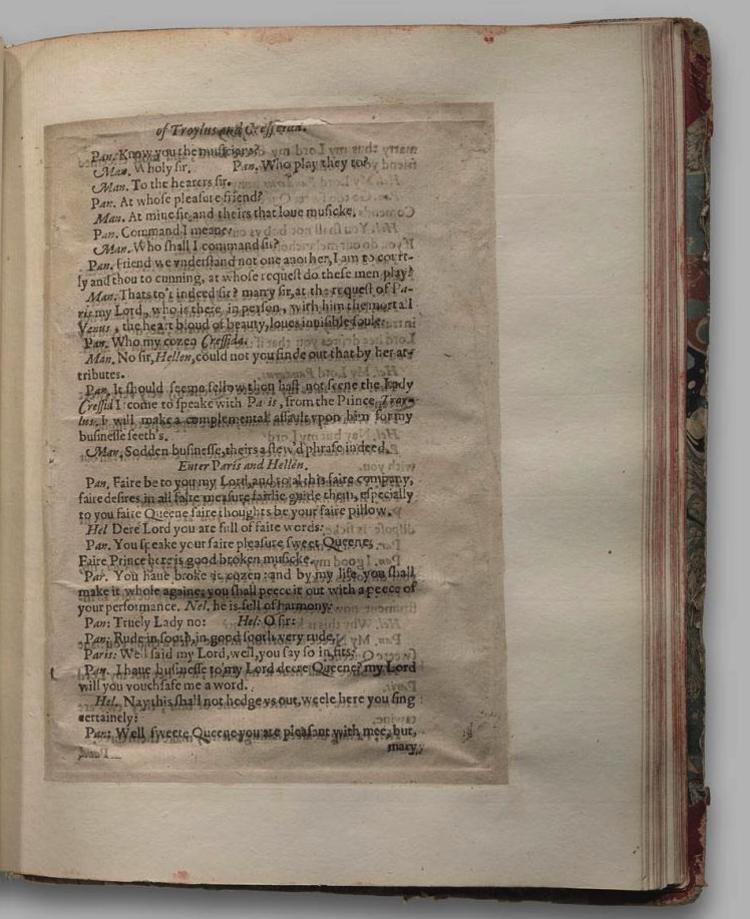 of Troylus and Cresseida.
Pan. Know you the musicians?
Man. Wholy sir. Pan. Who play they to?
Man. To the hearers sir.
Pan. At whose pleasure friend?
Man. At mine sir, and theirs that loue musicke.
Pan. Command I meane.
Man. Who shall I command sir?
Pan. Friend we vnderstand not one another, I am to court-
ly and thou to cunning, at whose request do these men play?
Man. Thats to't indeed sir? marry sir, at the request of Pa-
ris my Lord, who is there in person, with him the mortall
Venus, the heart bloud of beauty, loues inuisible soule.
Pan. Who my cozen Cressida.
Man. No sir, Hellen, could not you finde out that by her at-
tributes.
Pan. It should seeme fellow thou hast not seene the Lady
Cressid I come to speake with Paris, from the Prince Troy-
lus. I will make a complementall assault vpon him for my
businesse seeth's.
Man. Sodden businesse, theirs a stew'd phrase indeed.
Enter Paris and Hellen.
Pan. Faire be to you my Lord, and to al this faire company,
faire desires in all faire measure fairlie guide them, especially
to you faire Queene faire thoughts be your faire pillow.
Hel Dere Lord you are full of faire words:
Pan. You speake your faire pleasure sweet Queene,
Faire Prince here is good broken musicke.
Par. You haue broke it cozen: and by my life you shall
make it whole againe, you shall peece it out with a peece of
your performance. Nel. he is full of harmony:
Pan: Truely Lady no: Hel: O sir:
Pan: Rude in sooth, in good sooth very rude,
Paris: Well said my Lord, well, you say so in fits:
Pan. I haue businesse to my Lord deere Queene? my Lord
will you vouchsafe me a word.
Hel. Nay this shall not hedge vs out, weele here you sing
certainely:
Pan: Well sweete Queene you are pleasant with mee, but,
mary,